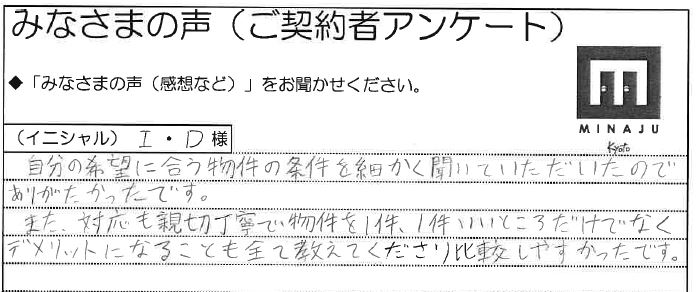 みなさまの声（ご契約者アンケート）
◆「みなさまの声（感想など）」をお聞かせください。
MINAJU
Kyoto
（イニシャル） I・D 様
自分の希望に合う物件の条件を細かく聞いていただいたので
ありがたかったです。
また、対応も親切丁寧で物件を1件、1件いいところだけでなく
デメリットになることも全て教えてくださり比較しやすかったです。